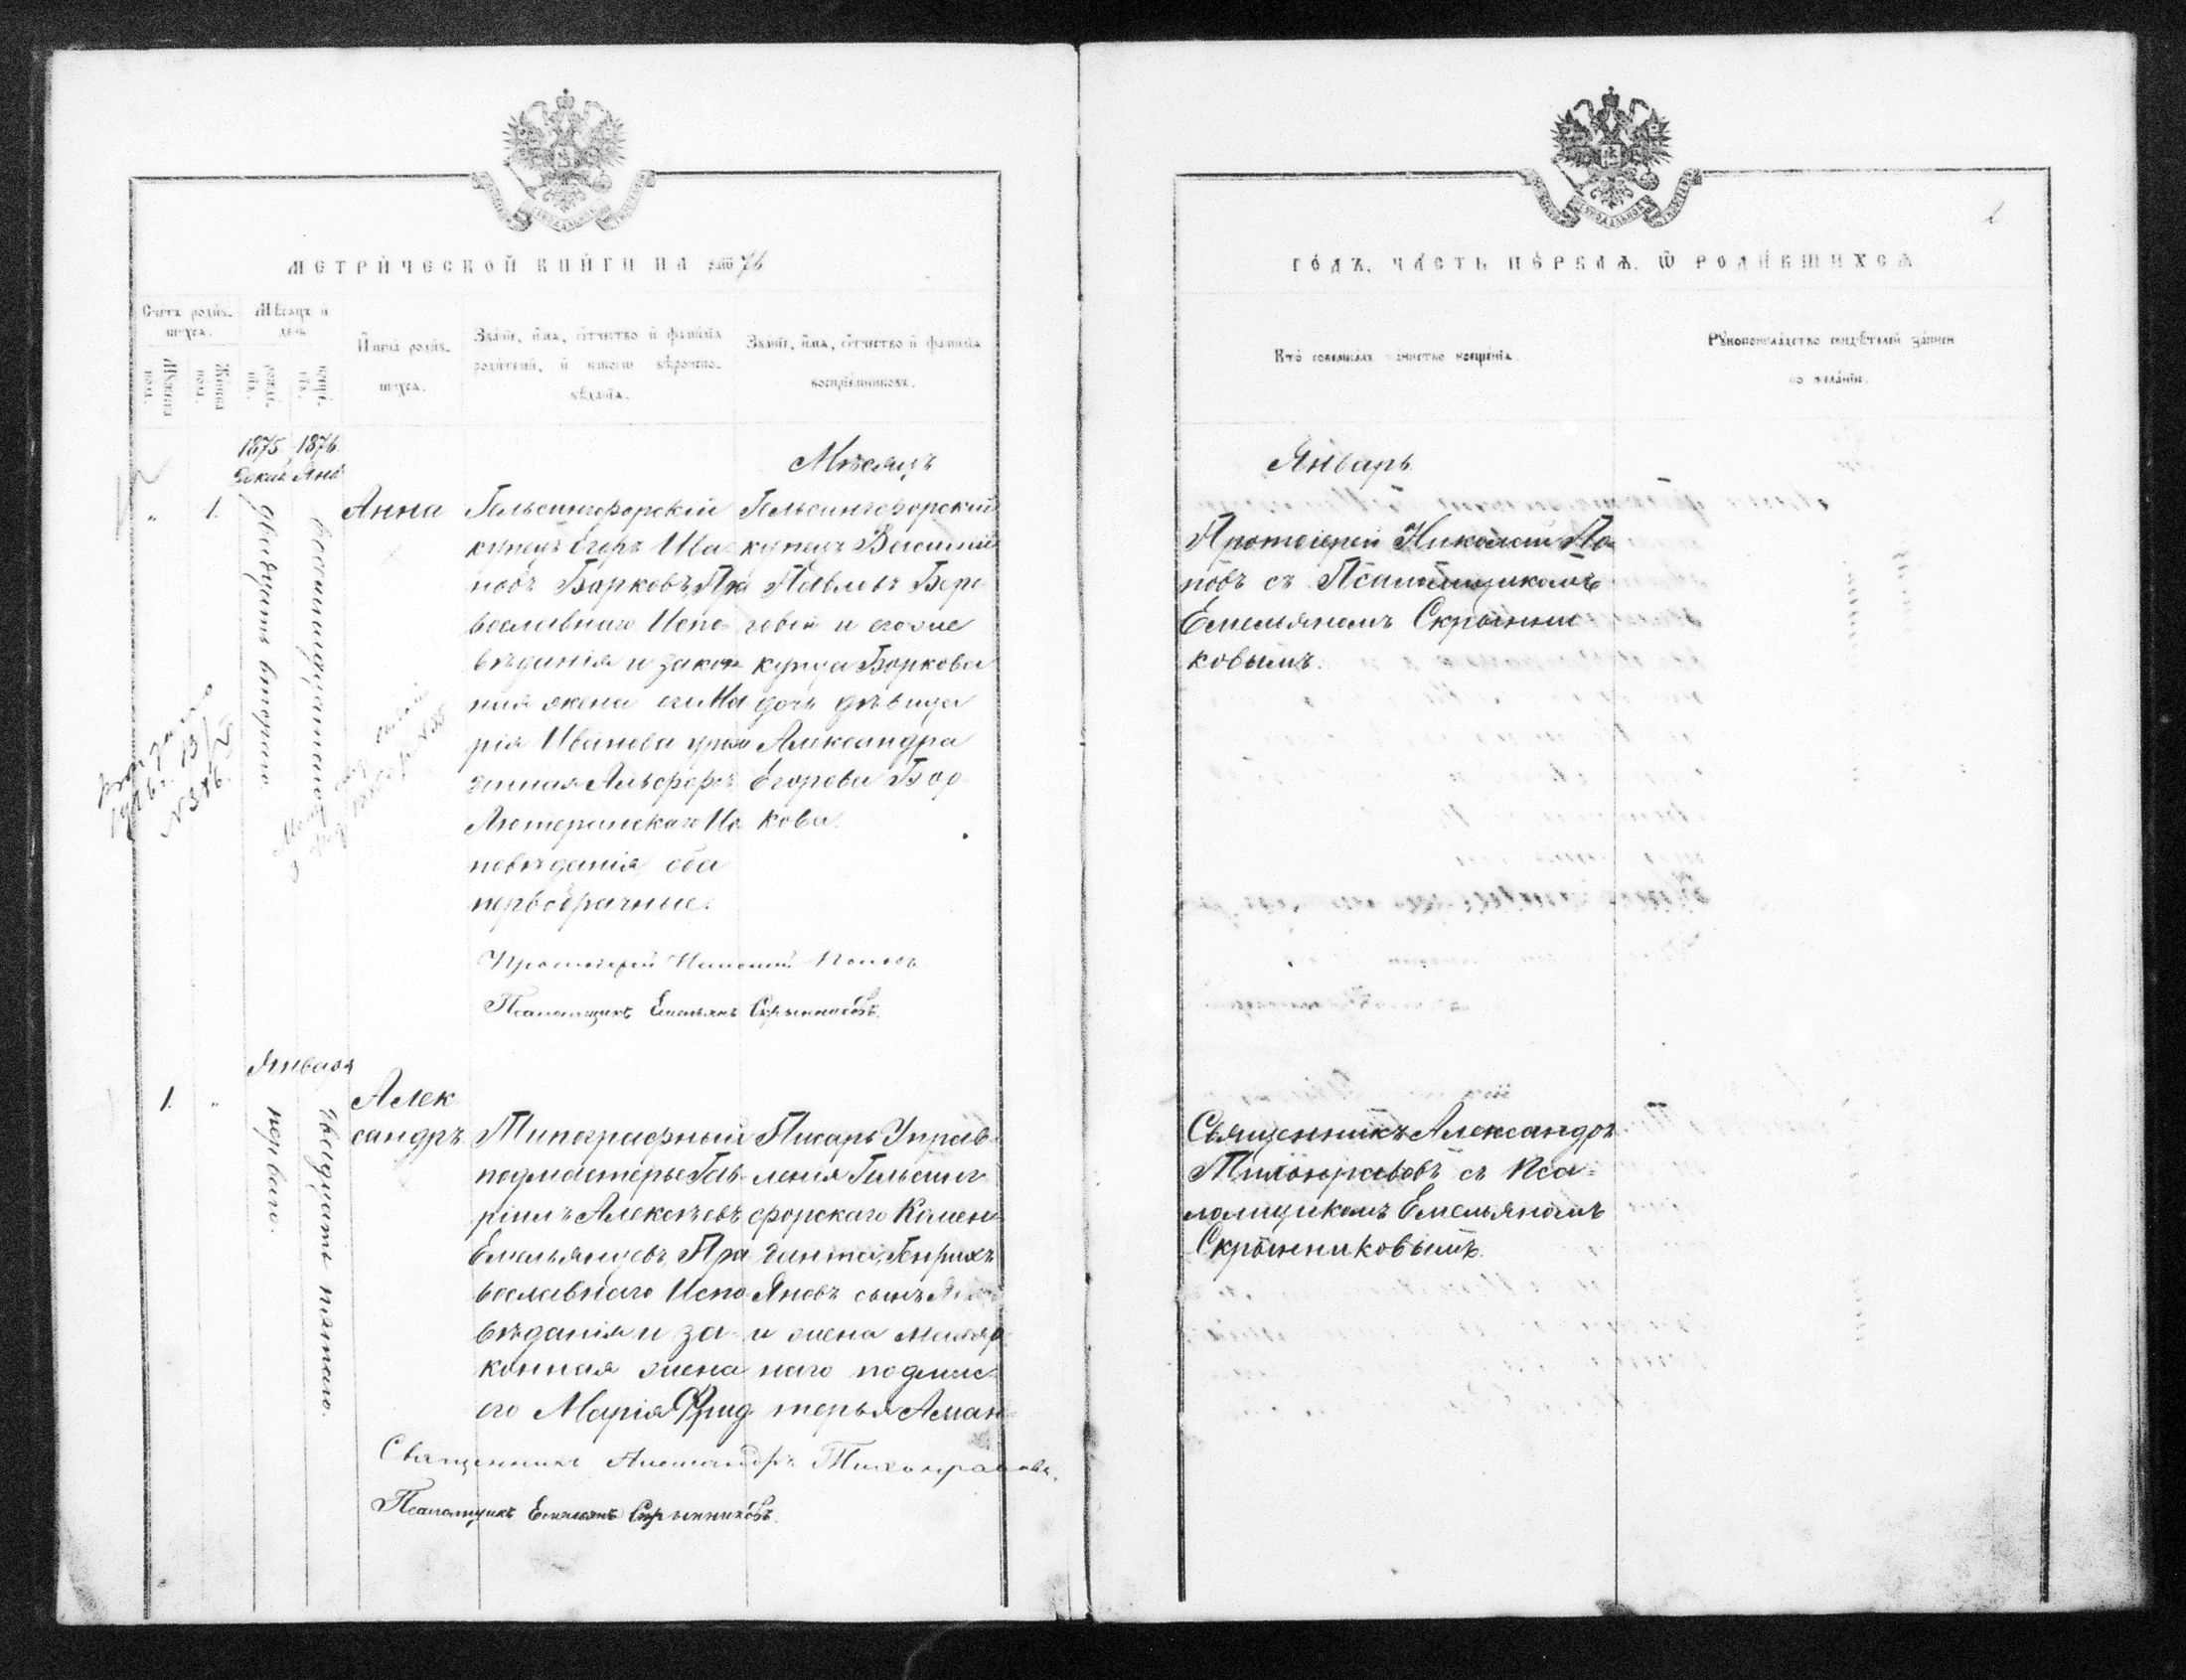 МЕТРИЧЕСКОЙ КНИГИ НА 1876
Счетъ родив-
шихся.
Мѣсяцъ и
день
Мужеска
пола.
Женска
пола.
рожде-
нія.
креще-
нія.
Имена родив-
шихся.
Званіе, имя, отчество и фамилія
родителей, и какого вѣроиспо-
вѣданія.
Званіе, имя, отчество и фамилія
воспріемниковъ.
1875 1876
Янв
Мѣсяцъ
1.
двадцать втораго.
восемнадцатаго
Анна
Гельсингфорскій
купецъ Егоръ Ива
новъ Борковъ, Пра
вославнаго Испо-
вѣданія и закон
ная жена его Ма
рія Иванова урож
денная
Лютеранскаго Ис
повѣданія оба
первобрачные.
Гельсингфорскій
купецъ Василій
Павловъ Бере
говой и его же
купца Боркова
дочь дѣвица
Александра
Егорова Бор
кова.
Протоіерей Николай Поповъ
Псаломщикъ Емельянъ Скрынниковъ.
Января
1.
перваго.
двадцать пятаго.
Алек
сандръ
Типографный
подмастерье Гав-
ріилъ Алексѣевъ
Емельянцевъ, Пра
вославнаго Испо
вѣданія и за-
конная жена
его Марія Фрид
Писарь Управ-
ленія Гельсинг
форскаго Комен
данта, Генрихъ
Яновъ сынъ
и жена маляр
наго подмас-
терья Аман-
Священникъ Александръ Тихонравовъ.
Псаломщикъ Емельянъ Скрынниковъ.
ГОДЪ, ЧАСТЬ ПЕРВАѦ, Ѡ РОДИВШИХСѦ
Кто совершалъ таинство крещенія.
Рукоприкладство свидѣтелей записи
по желанію.
Январь
Протоіерей Николай По
повъ съ Псаломщикомъ
Емельяномъ Скрынни
ковымъ.
Священникъ Александръ
Тихонравовъ съ Пса-
ломщикомъ Емельяномъ
Скрынниковымъ.